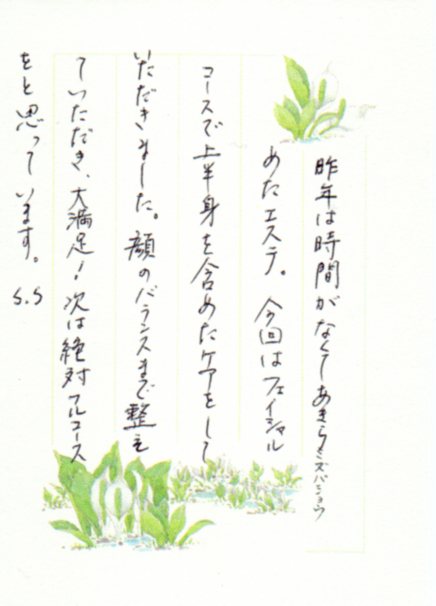 昨年は時間がなくてあきら
めたエステ。今回はフェイシャル
コースで上半身を含めたケアをして
いただきました。顔のバランスまで整え
ていただき、大満足！次は絶対フルコース
をと思っています。
S.S
ミズバショウ